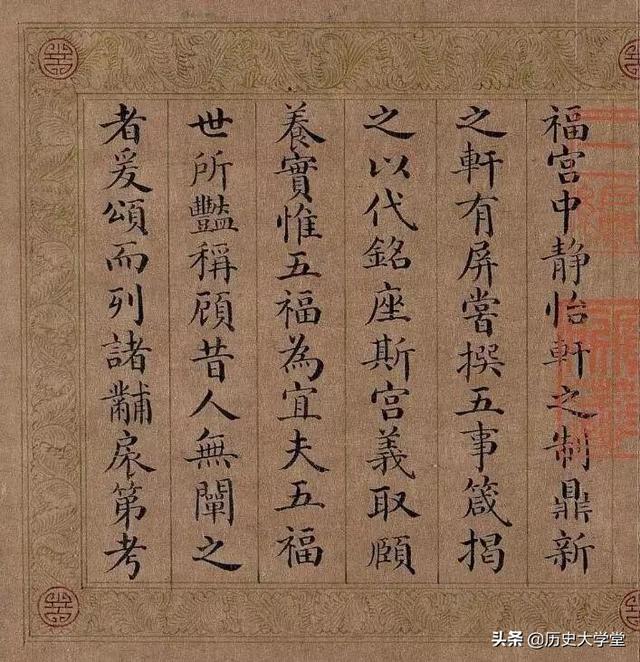 福宫中静怡軒之制鼎新
之軒有屏嘗撰五事箴揭
之以代銘座斯宫義取頤
養實惟五福為宜夫五福
世所豔稱顧昔人無闡之
者爰頌而列諸黼扆第考
头条 @历史大学堂